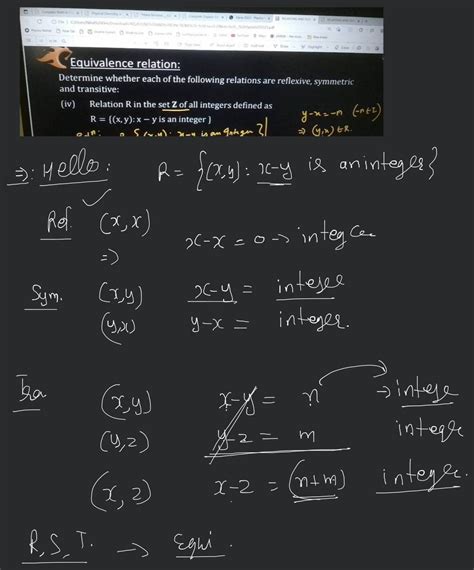 Equivalence relation:
Determine whether each of the following relations are reflexive, symmetric
and transitive:
(iv) Relation R in the set Z of all integers defined as
R = {(x, y): x − y is an integer}
y-x=-n (-n∈I)
⇒ (y,x)∈R.
⇒: Hello: R = {(x,y): x-y is an integer}
Ref. (x,x)
⇒ x-x = 0 → integer
Sym. (x,y) x-y = integer
(y,x) y-x = integer.
Tra (x,y) x-y = n → intege
(y,z) y-z = m integer
(x,z) x-z = (n+m) integer.
R,S,T. → Equi.